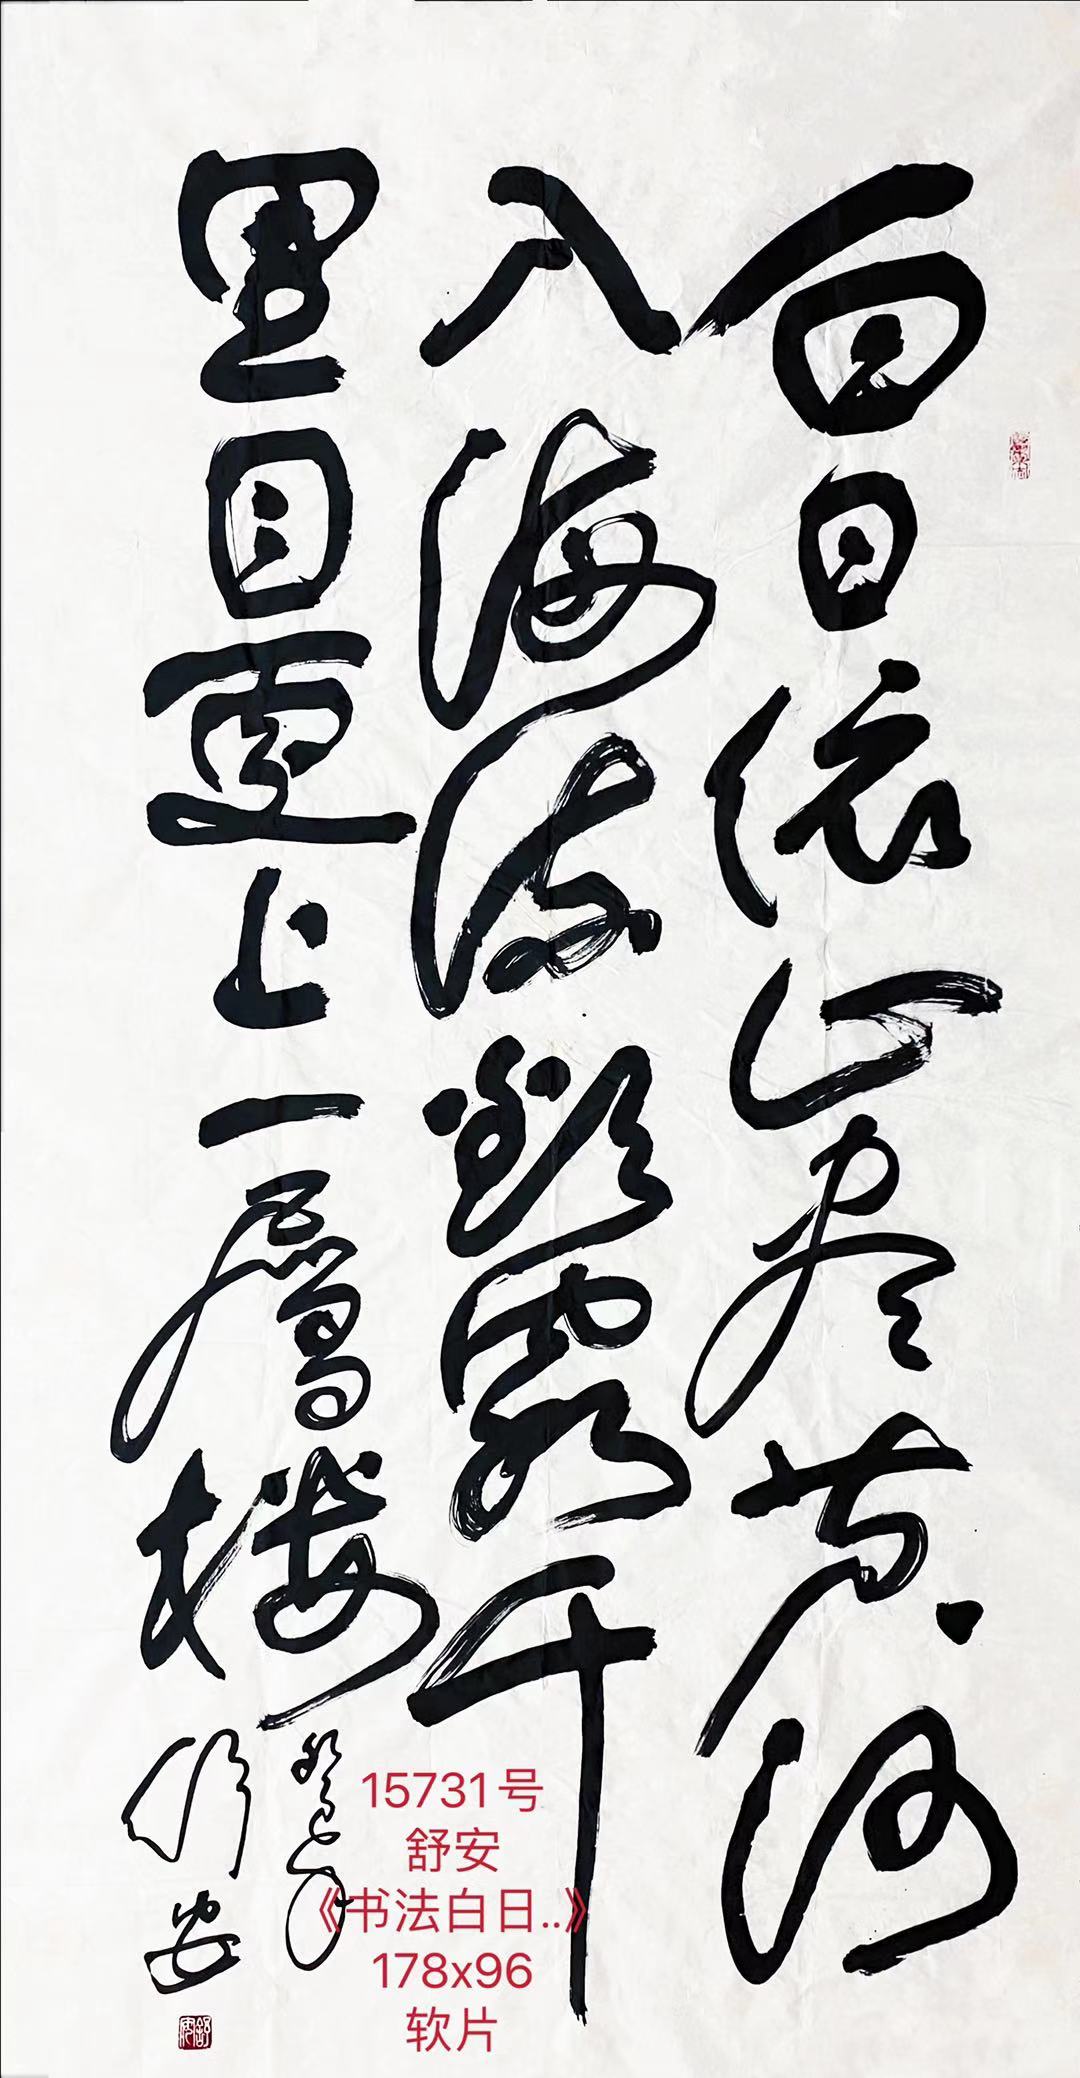 白日依山尽黄河
入海流欲穷千
里目更上一层楼
癸巳年
舒安
15731号
舒安
《书法白日..》
178x96
软片